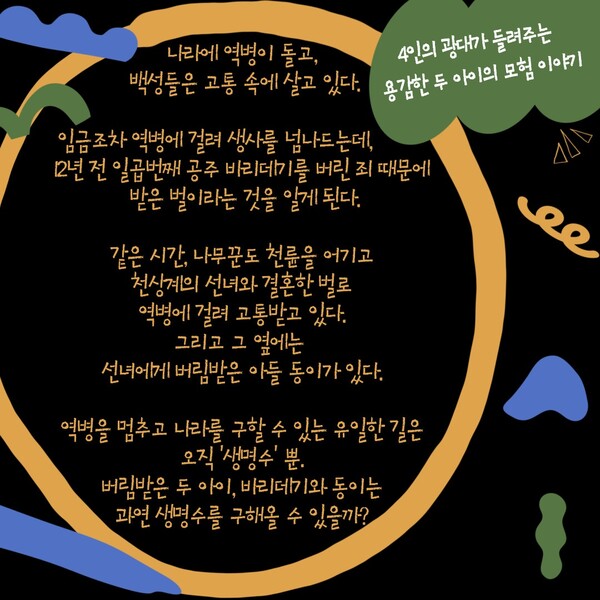 4인의 광대가 들려주는
용감한 두 아이의 모험 이야기
나라에 역병이 돌고,
백성들은 고통 속에 살고 있다.
임금조차 역병에 걸려 생사를 넘나드는데,
12년 전 일곱번째 공주 바리데기를 버린 죄 때문에
받은 벌이라는 것을 알게 된다.
같은 시간, 나무꾼도 천륜을 어기고
천상계의 선녀와 결혼한 벌로
역병에 걸려 고통받고 있다.
그리고 그 옆에는
선녀에게 버림받은 아들 동이가 있다.
역병을 멈추고 나라를 구할 수 있는 유일한 길은
오직 '생명수' 뿐.
버림받은 두 아이, 바리데기와 동이는
과연 생명수를 구해올 수 있을까?